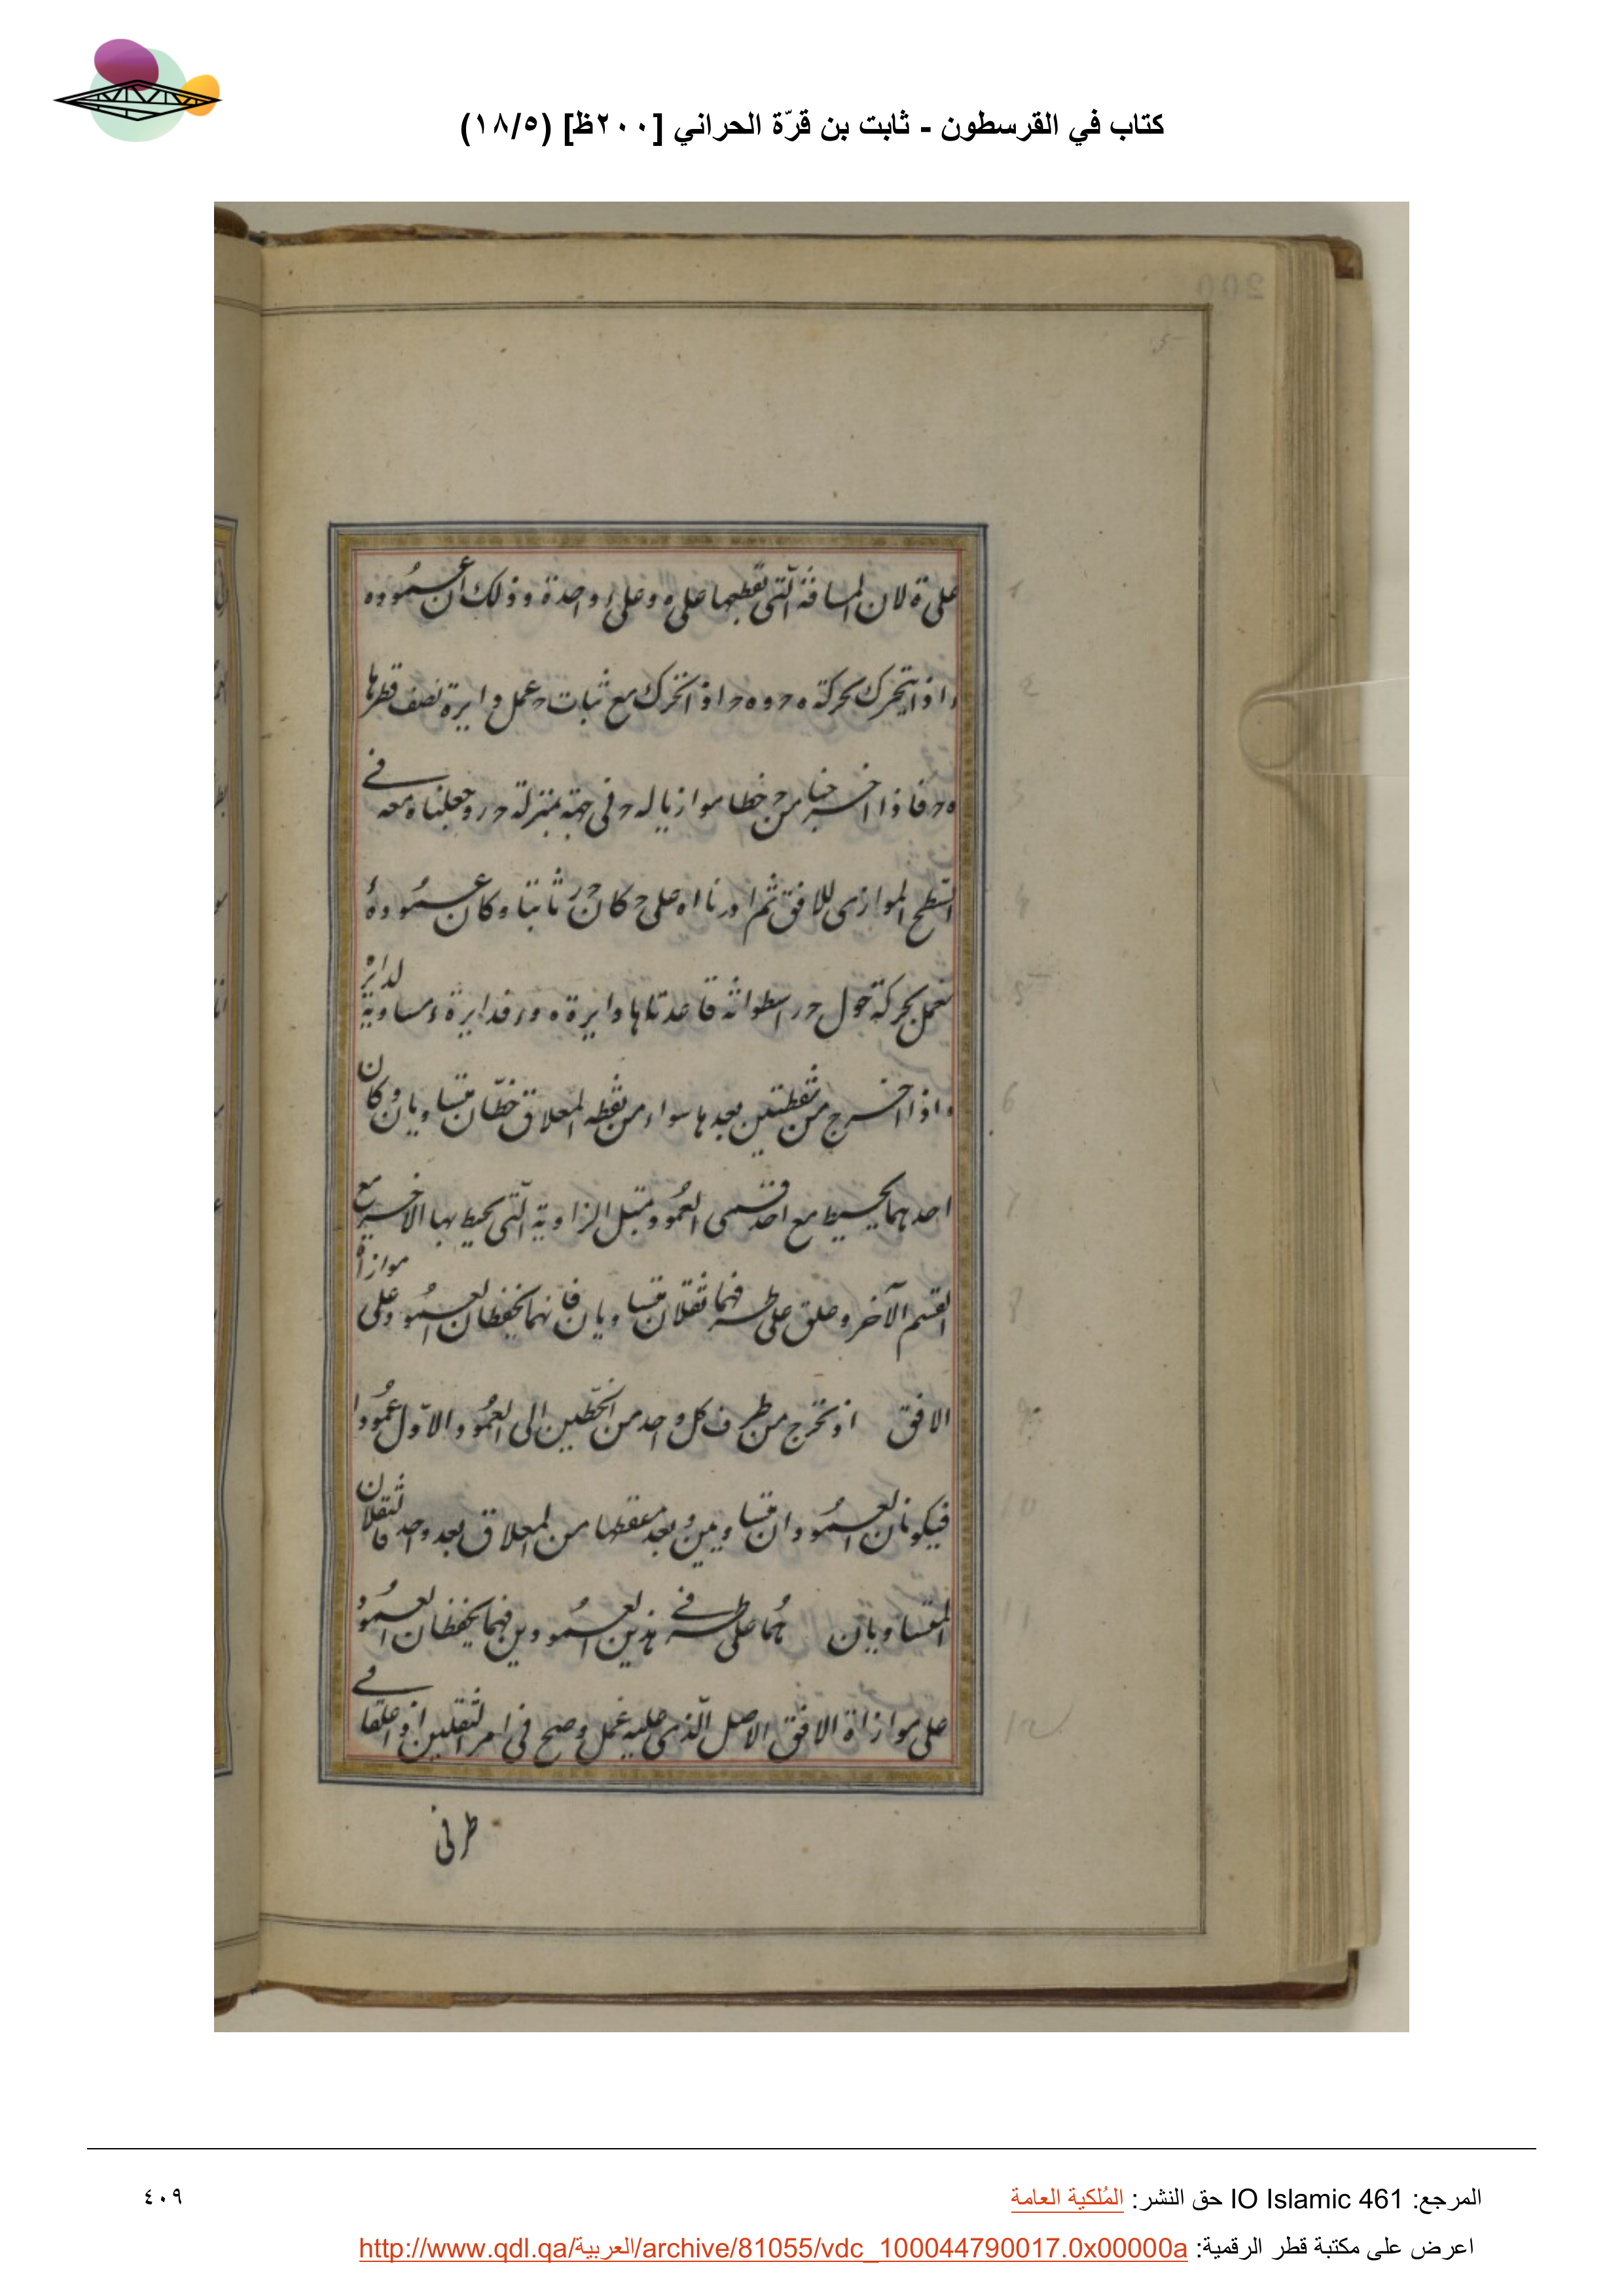 كتاب في القرسطون - ثابت بن قرّة الحراني [٢٠٠ظ] (١٨/٥)
200
5
على ة لان المسافة الّتى تقطعها على ه وعلى ر واحدة وذلك ان عمُود ه
واذا يتحرك بحركة ه ح و ه ح اذا تحرك مع ثبات ح عمل دايرة نصف قطرها
ه ح فاذا اخرجنا من ح خطا موازيا له ح فى جهة بمنزلة ح ر وجعلناه معه فى
السّطح الموازى للافق ثم ادرنا اه على ح كان ح ر ثابتا وكان عمُود
يعمل بحركة حول ح ر اسطوانة قاعدتاها دايرة ه و ر فدايرة مساوية لدايرة
واذا اخرج من نقطتين بعدها سواء من نقطه المعلاق خطّان متساويان وكان
احدهما يحيط مع احد قسمى العمُود مثل الزاوية الّتى يحيط بها الاخير مع
القسم الآخر وعلق على طرفهما ثقلان متساويان فانهما يحفظان العمُود على موازاة
الافق اذ نخرج من طرف كل واحد من الخطّين الى العمُود الاوّل عمُودا
فيكونان العمُودان متساويين وبعد مسقطها من المعلاق بعد واحد فالثقلان
المتساويان هُما على طرفى هذين العمُودين فهما يحفظان العمُود
على موازاة الافق الاصل الّذى عليه عمل وصح فى امر الثقلين اذ اعلقا فى
طرفى
1
2
3
4
5
6
7
8
9
10
11
12
المرجع: IO Islamic 461 حق النشر: المُلكية العامة
٤٠٩
اعرض على مكتبة قطر الرقمية: http://www.qdl.qa/العربية/archive/81055/vdc_100044790017.0x00000a